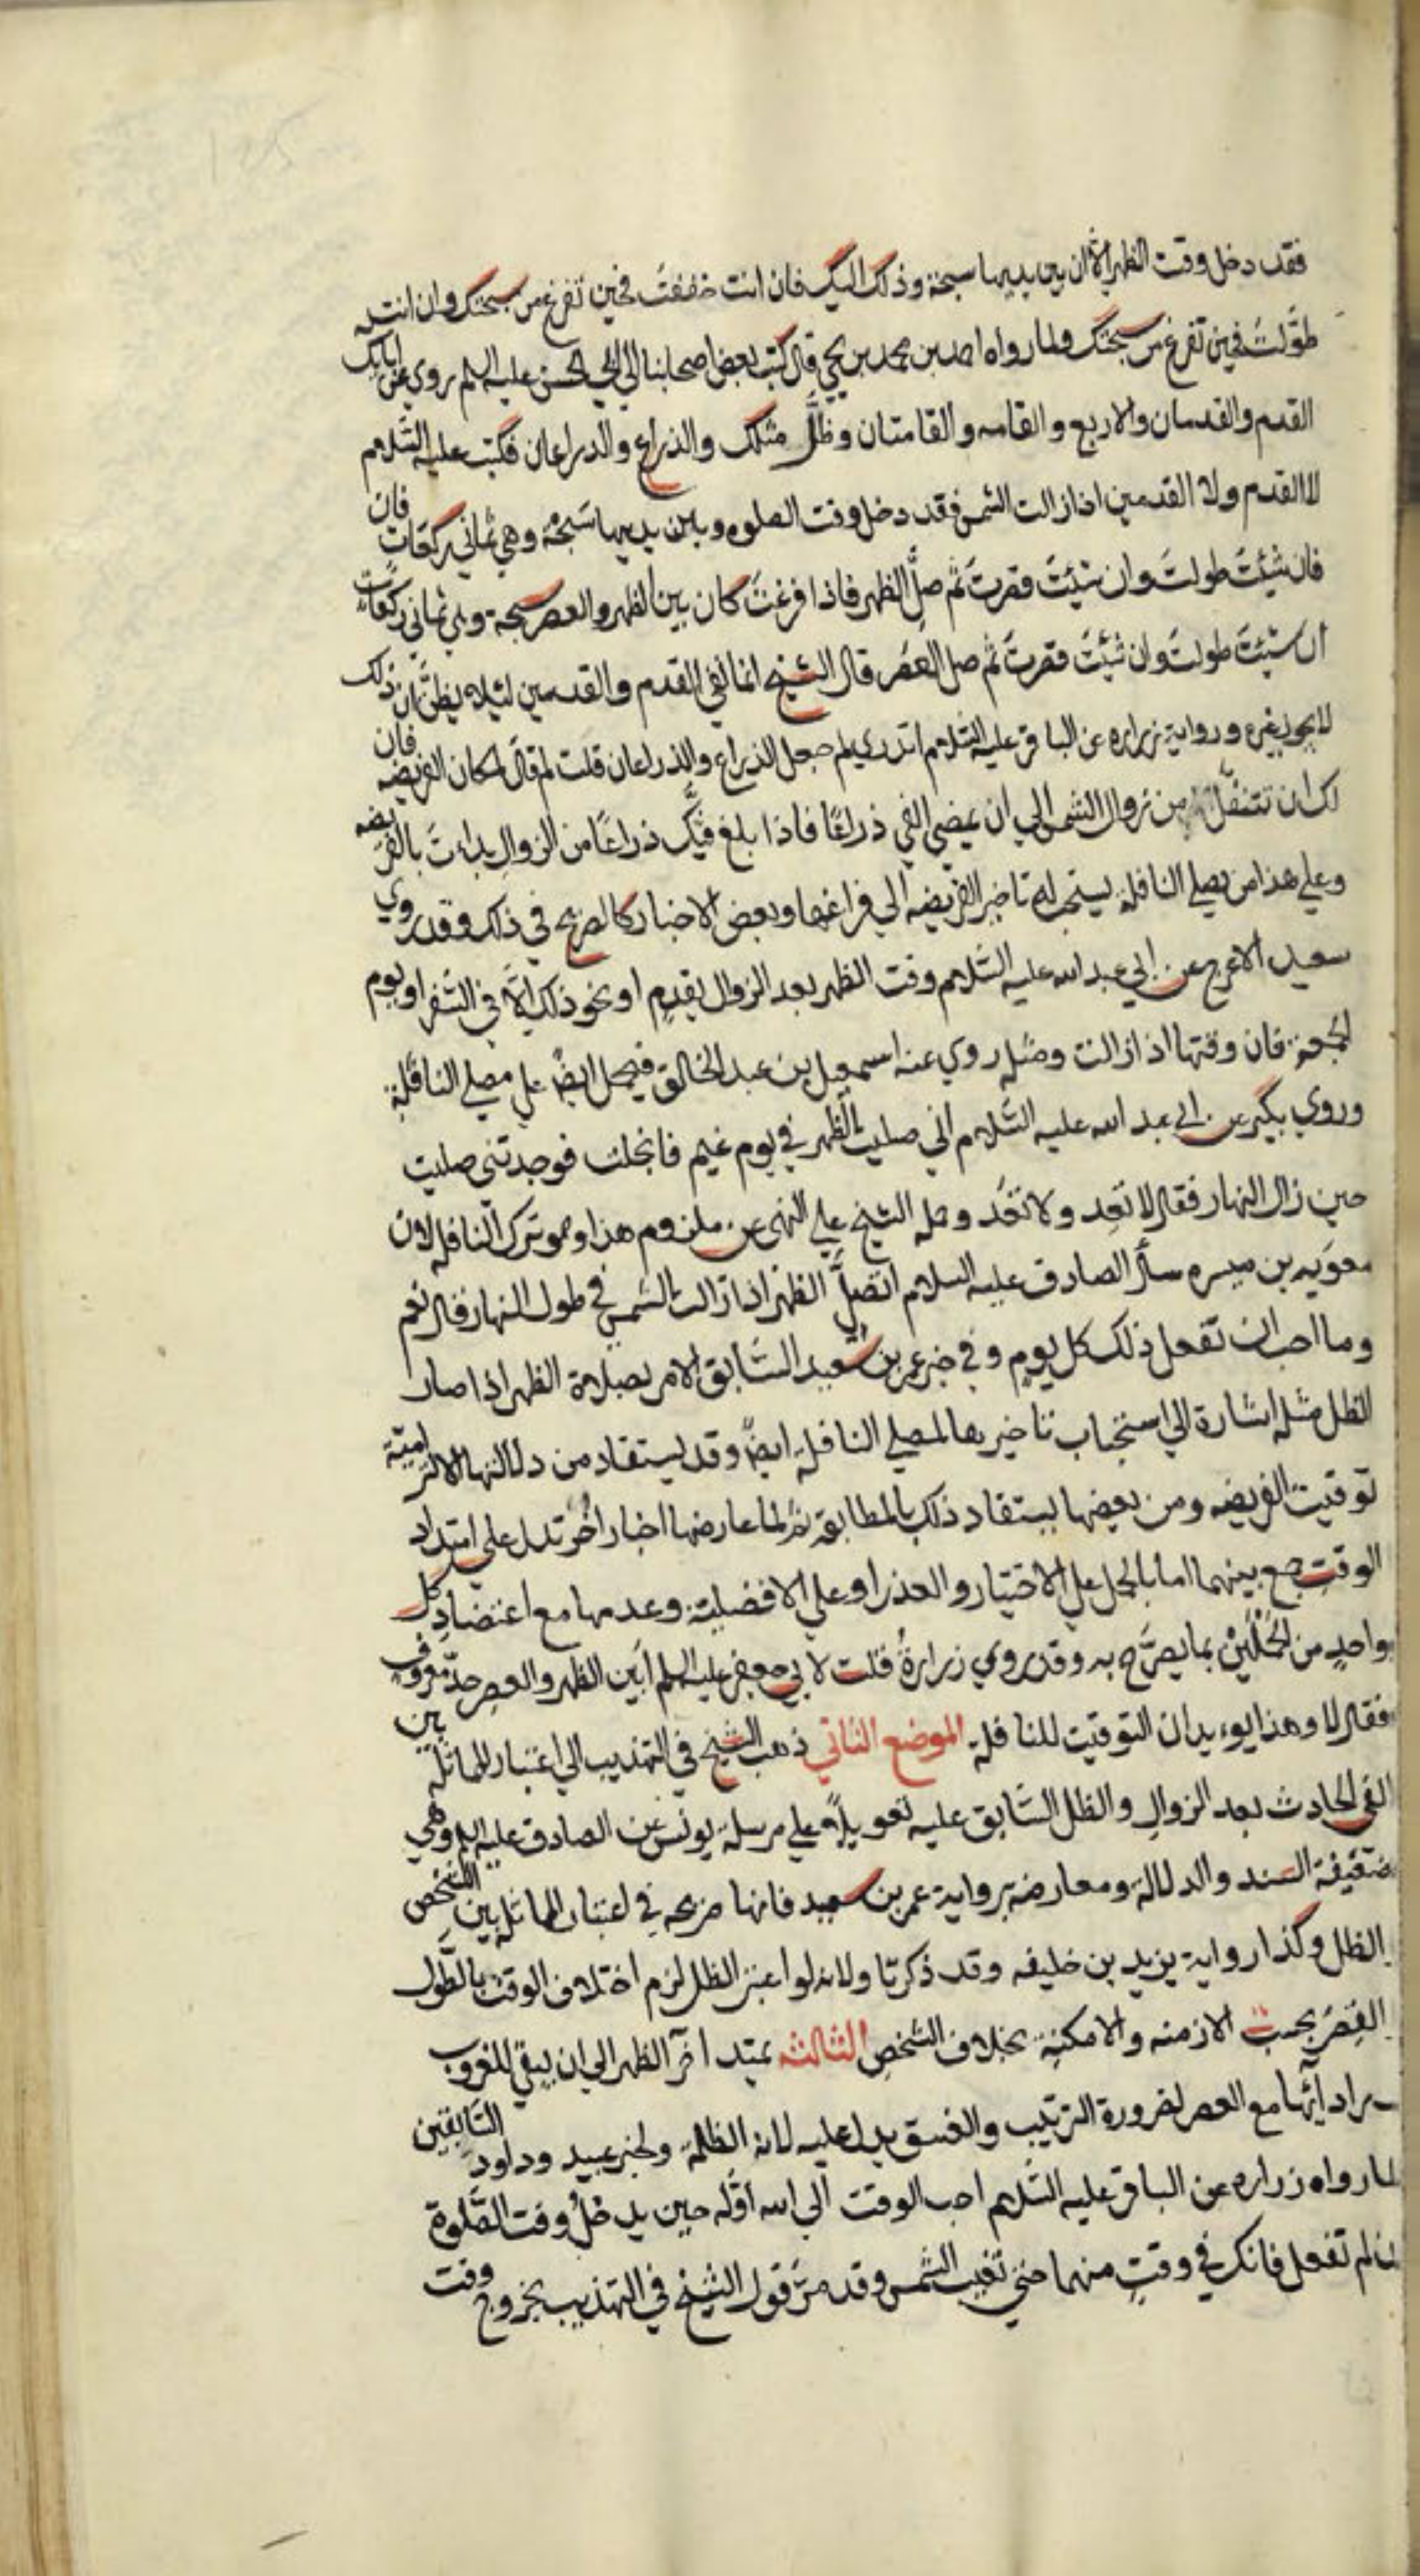 فقد دخل وقت الظهر الا ان بين يديها سبحة وذلك اليك فان انت خففت فحين تفرغ من سبحتك وان انت
طوّلت فحين تفرغ من سبحتك ولما رواه احمد بن محمد بن يحيى قال كتب بعض اصحابنا الى ابي الحسن عليه السلم روي عن ابائك
القدم والقدمان والاربع والقامه والقامتان وظلّ مثلك والذراع والذراعان فكتب عليه السّلام
لا القدم ولا القدمين اذا زالت الشمس فقد دخل وقت الصلوه وبين يديها سَبحة وهي ثماني ركعَات فان
فان شئتَ طولتَ وان شئتَ قصرتَ ثم صلِّ الظهر فاذا فرغتَ كان بين الظهر والعصر سبحة وهي ثماني ركعات
ان شئتَ طولتَ وان شئتَ قصرتَ ثم صل العصر قال الشيخ انما نفى القدم والقدمين لئلا يظنَّ ان ذلك
لا يجوز غيره ورواية زراره عن الباقر عليه السّلام اتدري لم جعل الذراع والذراعان قلت لم قال لمكان الفريضه فان
لك ان تتنفّل من زوال الشمس الى ان يمضي الفي ذراعًا فاذا بلغ فيّك ذراعًا من الزوال بداءت بالفريضه
وعلى هذا من يصلي النافلة يستحب له تاخير الفريضه الى فراغها وبعض الاخبار كالصريح في ذلك وقد روي
سعيد الاعرج عن ابي عبد الله عليه السّلام وقت الظهر بعد الزوال بقدمٍ او نحو ذلك الّا في السّفر او يوم
الجمعة فان وقتها اذا زالت ومثله روي عنه اسمعيل بن عبد الخالق فيحمل ايضًا على مصلي النافلة
وروي بكير عن ابي عبد الله عليه السّلام اني صليت الظهر في يوم غيم فانجلت فوجدتني صليت
حين زال النهار فقال لا تُعِد ولا تَعُد وحمله الشيخ على النهي عن ملزوم هذا وهو ترك النافله لان
معويه بن ميسره سأل الصادق عليه السلام اتصلّ الظهر اذا زالت الشمس في طول النهار فقال نعم
وما احب ان تفعل ذلك كل يومٍ وفي خبر عمر بن سَعيد السّابق الامر بصلاة الظهر اذا صار
الظل مثله اشارة الى استحباب تاخيرها لمصلي النافلة ايضًا وقد يستفاد من دلالتها الالتزاميّة
توقيت الفريضه ومن بعضها يستفاد ذلك بالمطابقة ثمّ لما عارضها اخبار اخُر تدل على امتداد
الوقت جمع بينهما اما بالحمل على الاختيار والعذر او على الافضلية وعدمها مع اعتضاد كل
واحدٍ من الحَمْلَيْن بما يصرَّح به وقد روي زرارةُ قلت لابي جعفر عليه السلم أبَين الظهر والعصر حدّ معروف
فقال لا وهذا يوءيد ان التوقيت للنافلة الموضع الثاني ذهب الشيخ في التهذيب الى اعتبار المماثلة بين
الفي الحادث بعد الزوال والظل السّابق عليه تعويلًا على مرسلة يونس عن الصادق عليه السلم وهي
ضعيفة السند والدلالة ومعارضة برواية عمر بن سعيد فانها صريحه في اعتبار المماثلة بين الشخص
الظل وكذا رواية يزيد بن خليفه وقد ذكرتا ولانه لو اعتبر الظل لزم اختلاف الوقت بالطّول
القِصَر بحسب الازمنه والامكنة بخلاف الشخص الثالثه يمتد اخر الظهر الى ان يبقى للغروب
مقدار ادآئها مع العصر لضرورة الترتيب والغسق يدل عليه لانه الظلمة ولخبر عبيد وداود السّابقين
لما رواه زراره عن الباقر عليه السّلام احب الوقت الى الله اوّله حين يدخلُ وقت الصّلوة
فان لم تفعل فانك في وقتٍ منهما حتى تغيب الشمس وقد مرّ قول الشيخ في التهذيب بخروج وقت